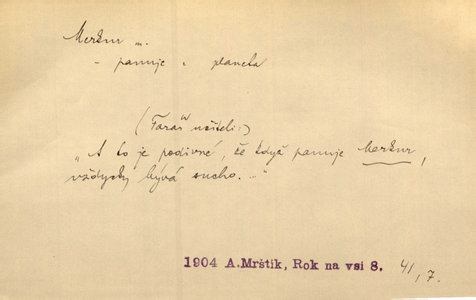 Merkur m.
- panuje : planeta
(Farář v neděli:)
„A to je podivné, že když panuje Merkur,
vždycky bývá sucho..."
1904 A.Mrštík, Rok na vsi 8. 41, 7.